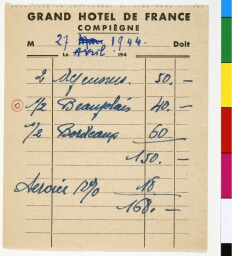 GRAND HOTEL DE FRANCE
COMPIÈGNE
M 27 Mars 1944. Doit
Le Avril 194
2 Déjeuners. 50.—
1/2 Beaujolais 40.—
1/2 Bordeaux 60
150.—
Service 12% 18
168.—